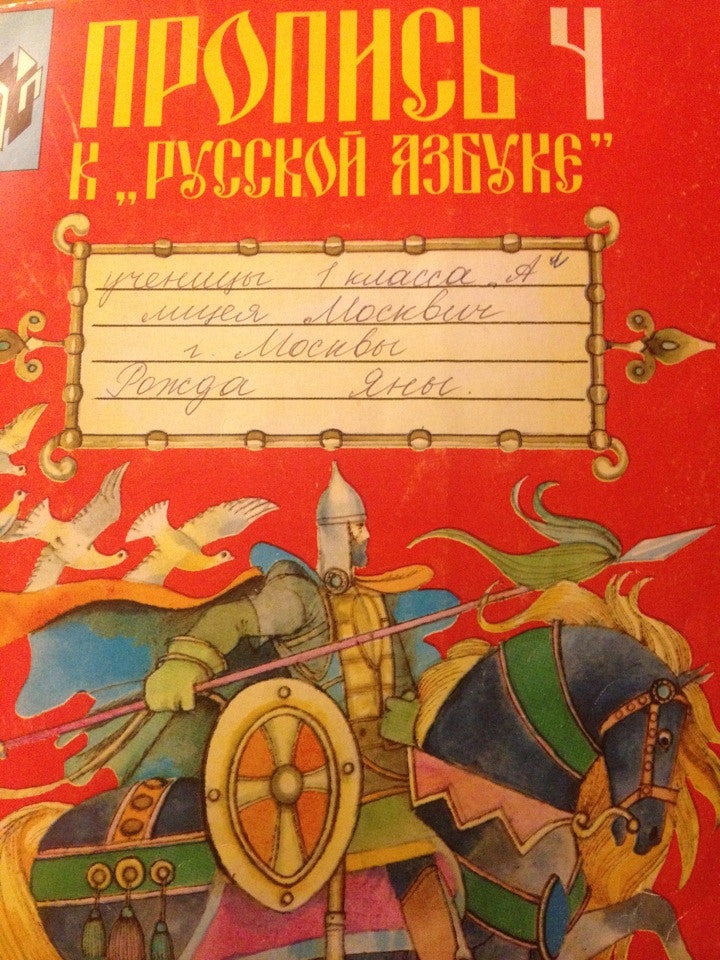 ПРОПИСЬ 4
К „РУССКОЙ АЗБУКЕ”
ученицы 1 класса „А“
лицея Москвич
г Москвы
Рожда Яны.